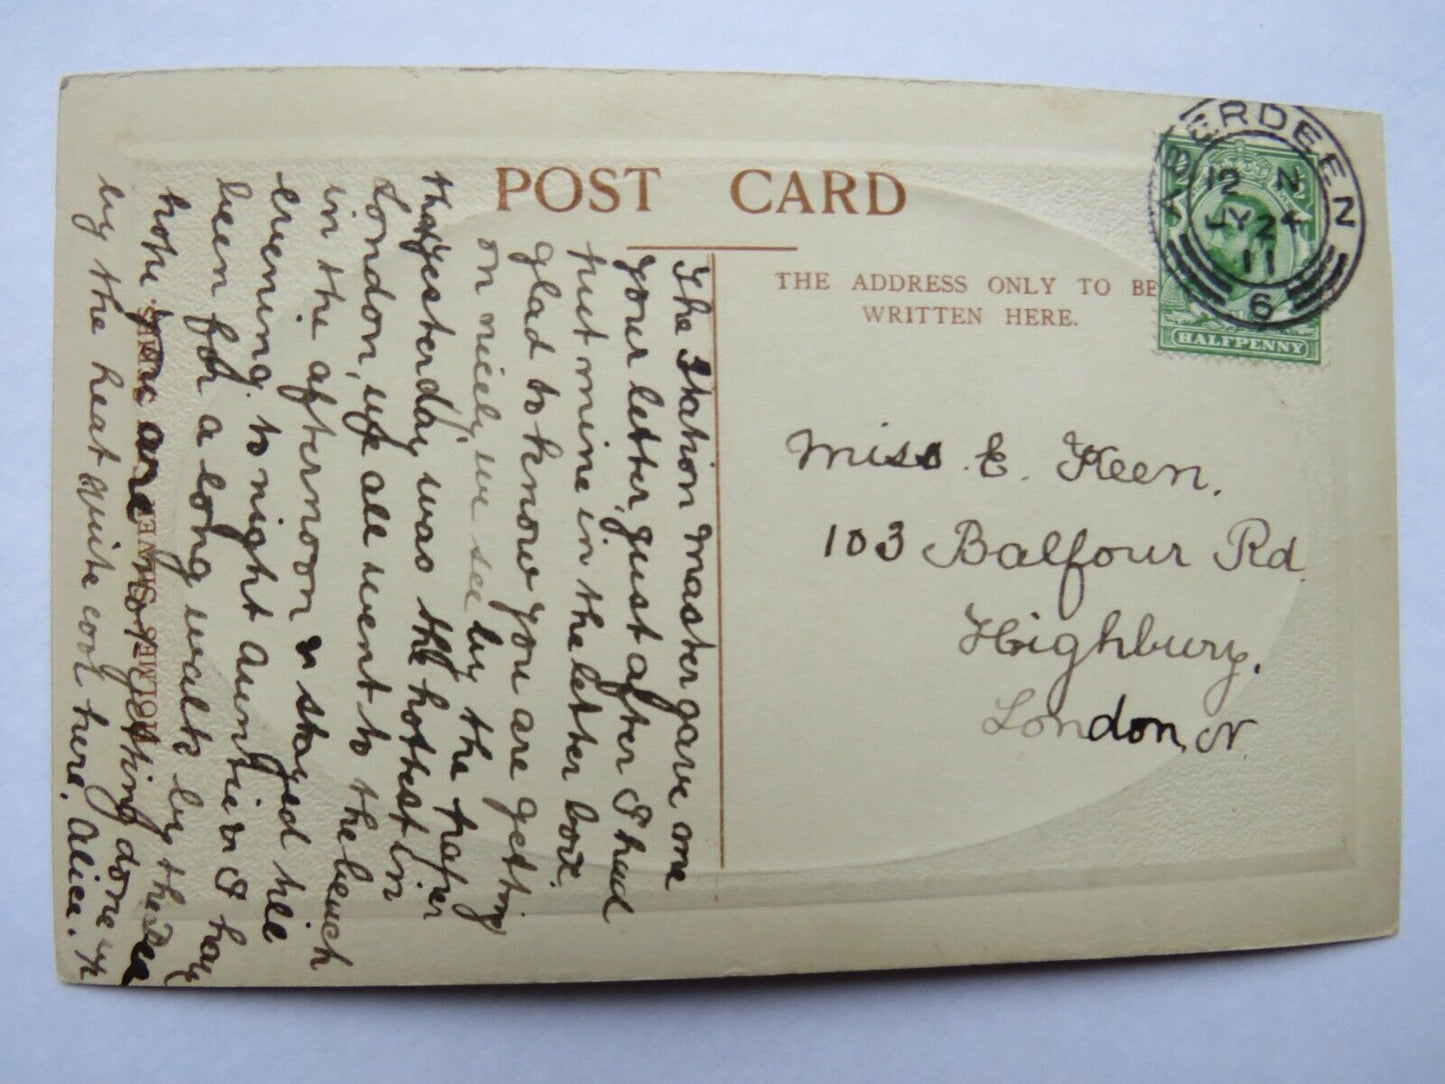 POST CARD
THE ADDRESS ONLY TO BE
WRITTEN HERE.
ABERDEEN
12 N
JY 24
11
6
HALFPENNY
Miss. E. Keen.
103 Balfour Rd
Highbury.
London, N.
The Station Master gave me
your letter, just after I had
put mine in the letter box.
glad to know you are getting
on nicely, we see by the paper
that yesterday was the hottest in
London, we all went to the beach
in the afternoon & stayed till
evening. to night Auntie & I have
been for a long walk by the sea
hope you are not getting done up
by the heat quite cool here. Alice.